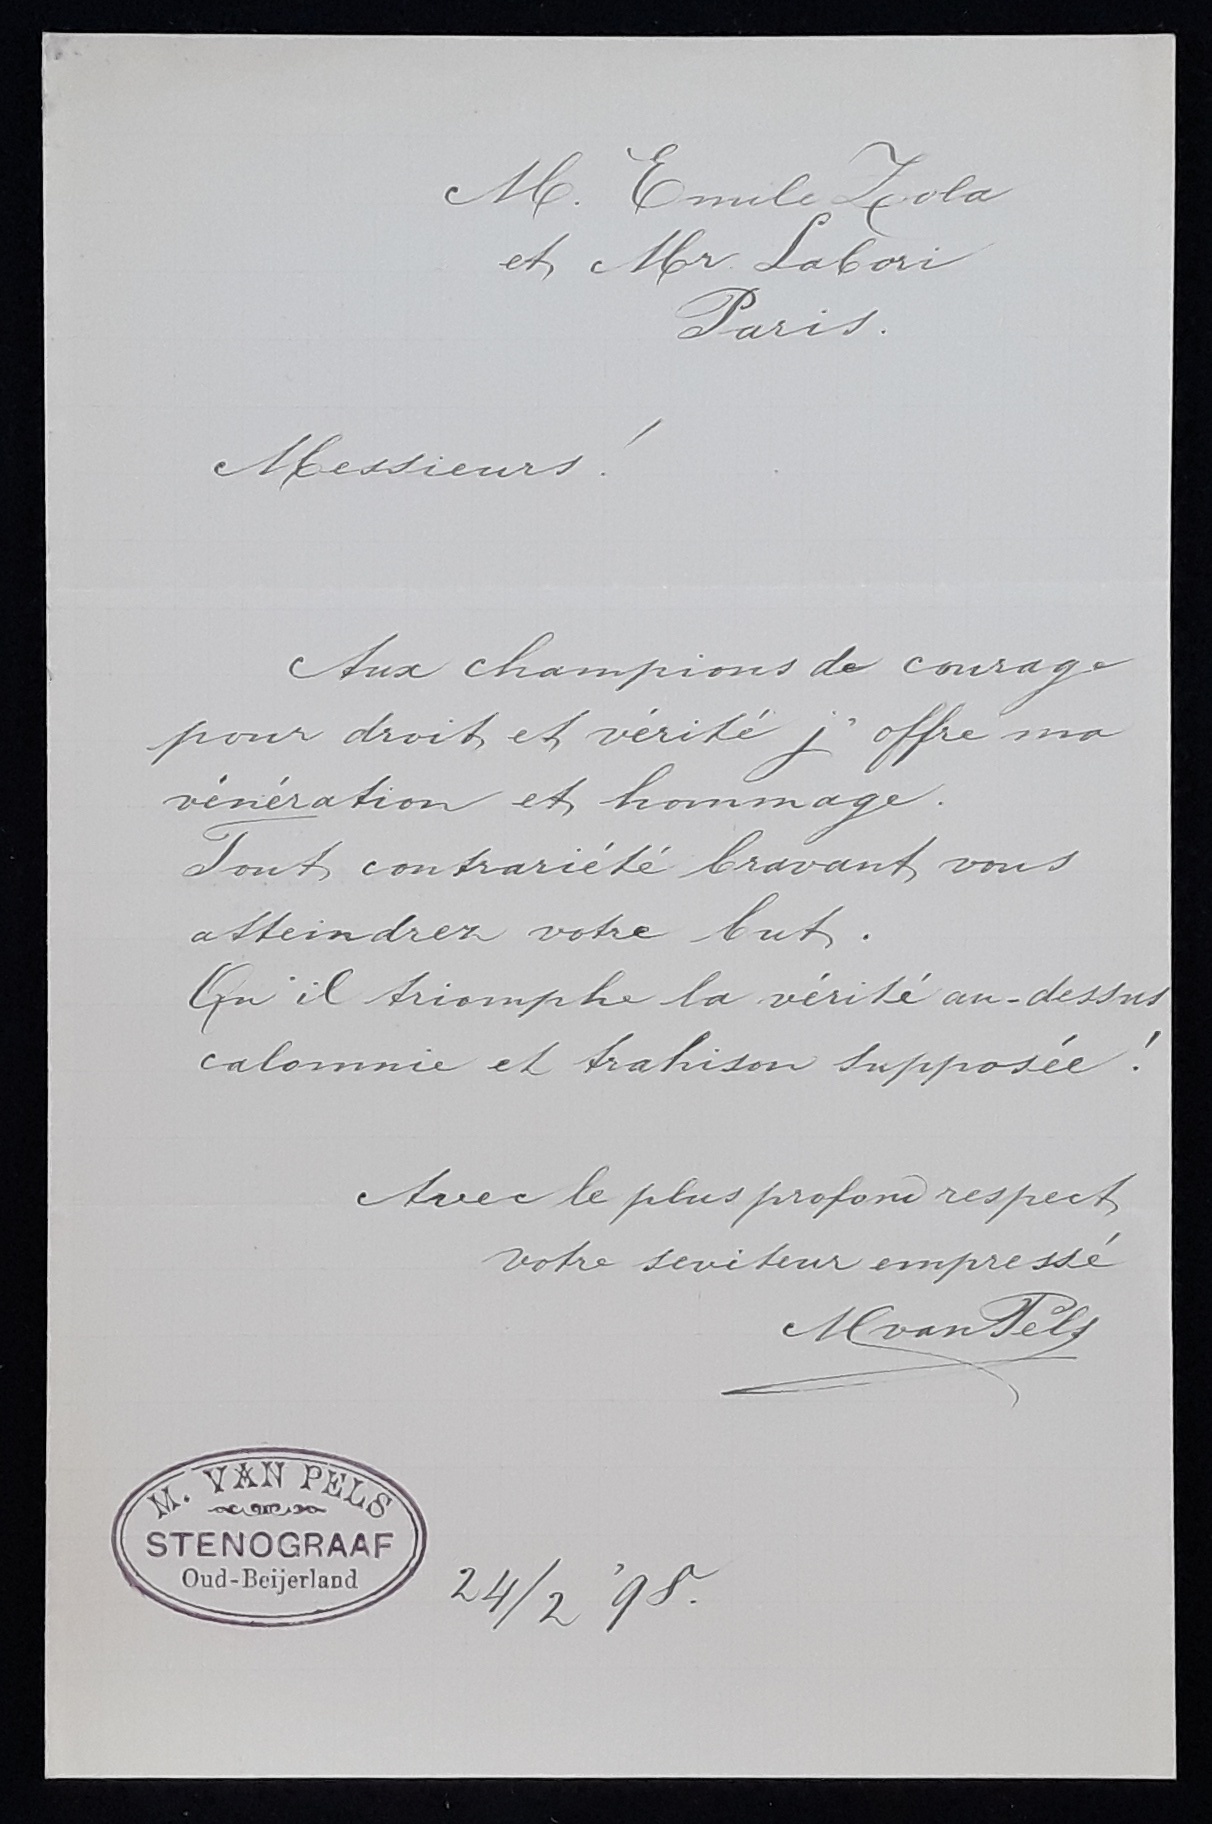 M. Emile Zola
et Mr. Labori
Paris.
Messieurs!
Aux champions de courage
pour droit et vérité j'offre ma
vénération et hommage.
Tout contrariété bravant vous
atteindrez votre but.
Qu'il triomphe la vérité au-dessus
calomnie et trahison supposée!
Avec le plus profond respect
votre seviteur empressé
M van Pels
M. VAN PELS
STENOGRAAF
Oud-Beijerland
24/2 '98.